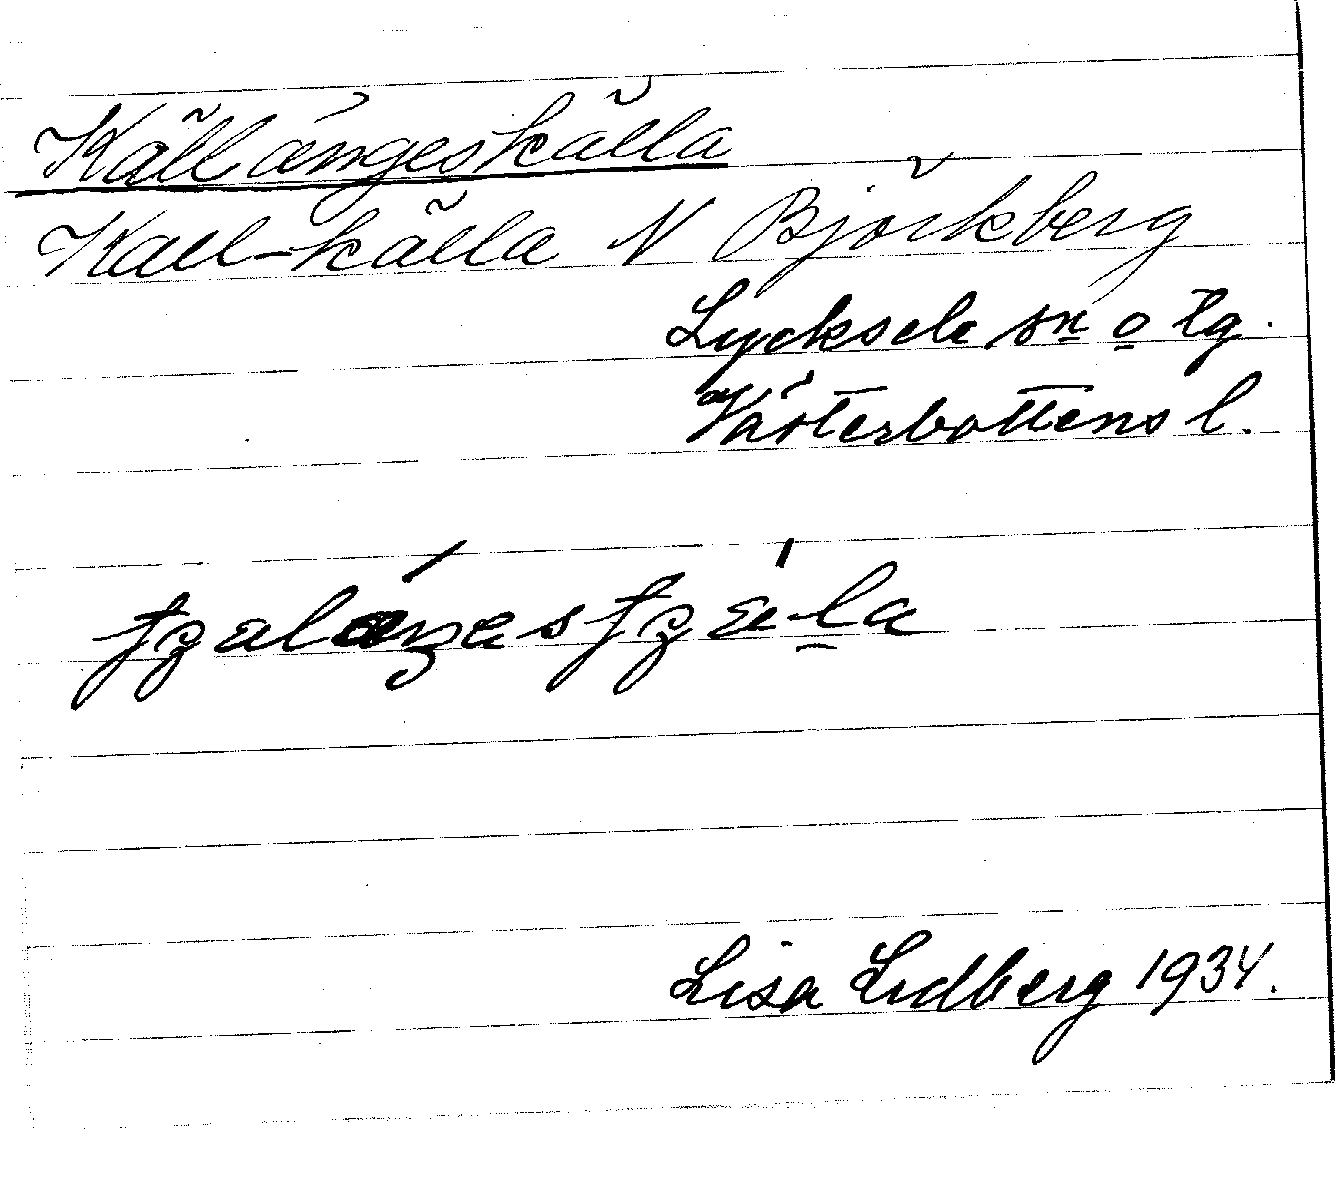 Källängeskälla
Kall-källa N Björkberg
Lycksele sn o tg.
Västerbottens l.
Lisa Lidberg 1934.